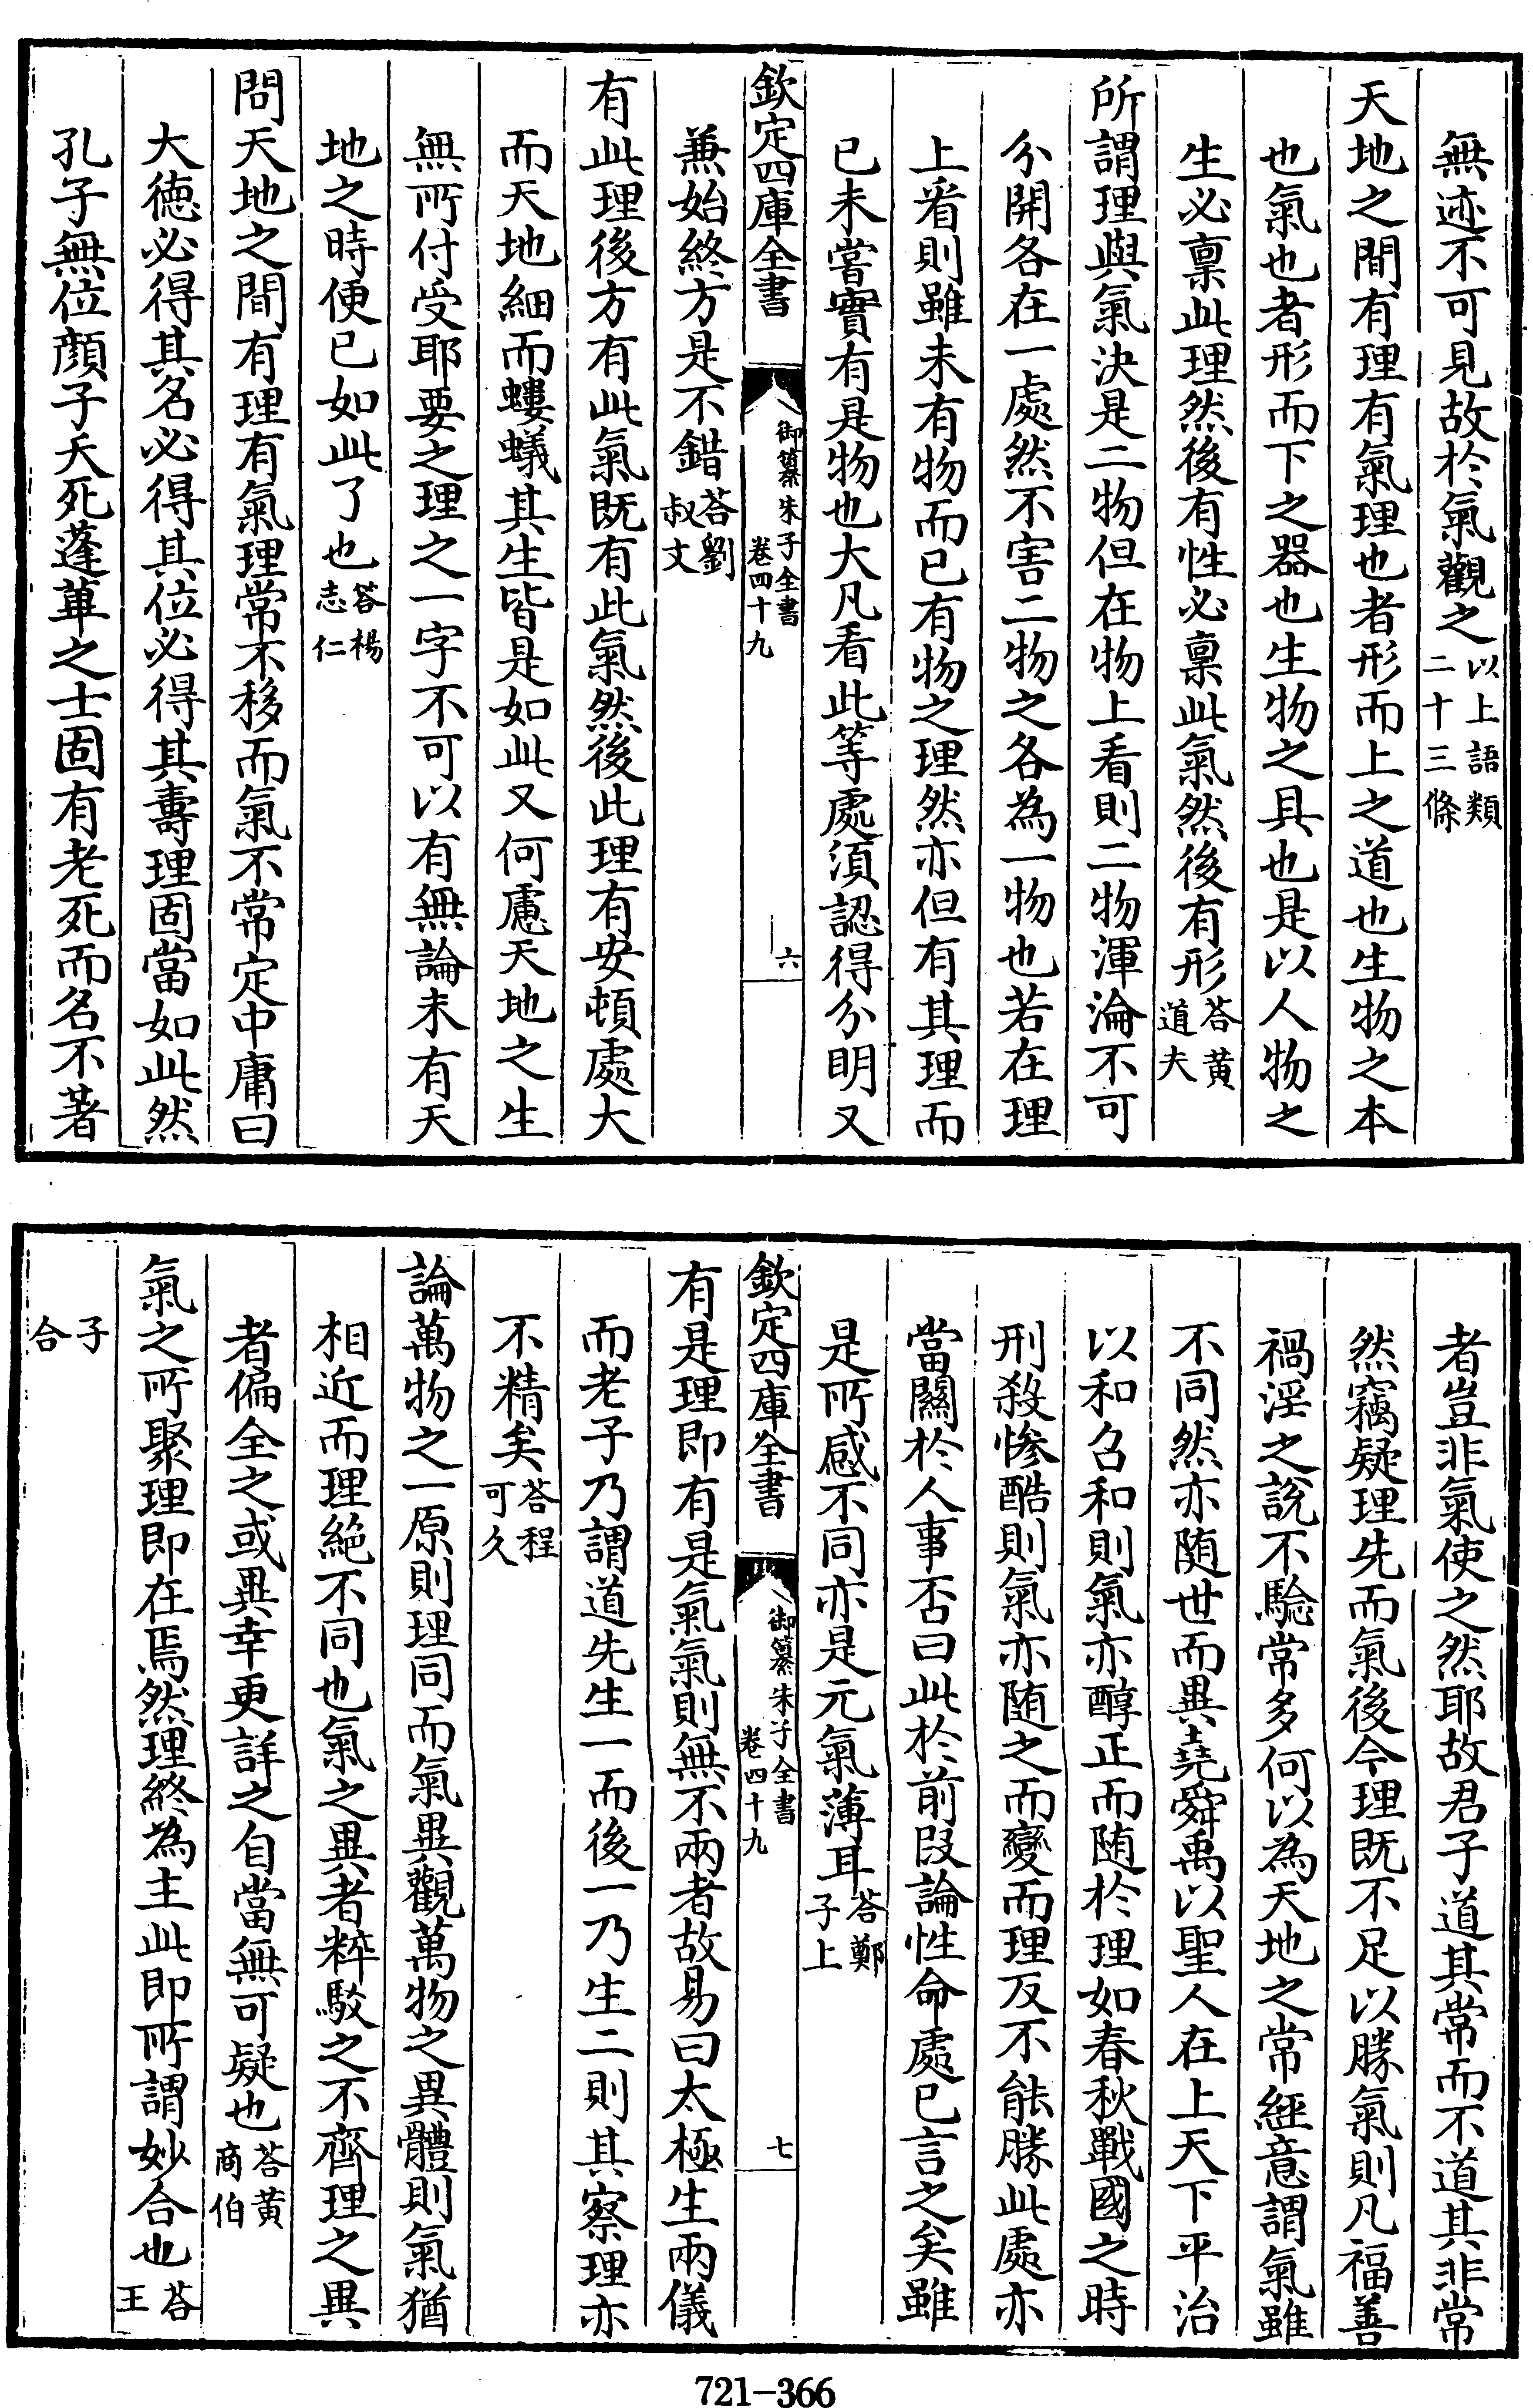 無迹不可見故於氣觀之以上語類二十三條
天地之間有理有氣理也者形而上之道也生物之本
也氣也者形而下之器也生物之具也是以人物之
生必禀此理然後有性必禀此氣然後有形荅黄道夫
所謂理與氣決是二物但在物上看則二物渾淪不可
分開各在一處然不害二物之各為一物也若在理
上看則雖未有物而已有物之理然亦但有其理而
已未嘗實有是物也大凡看此等處須認得分明又
欽定四庫全書 御纂朱子全書卷四十九 六
兼始終方是不錯荅劉叔文
有此理後方有此氣既有此氣然後此理有安頓處大
而天地細而螻蟻其生皆是如此又何慮天地之生
無所付受耶要之理之一字不可以有無論未有天
地之時便已如此了也荅楊志仁
問天地之間有理有氣理常不移而氣不常定中庸曰
大徳必得其名必得其位必得其壽理固當如此然
孔子無位顔子夭死蓬蓽之士固有老死而名不著
者豈非氣使之然耶故君子道其常而不道其非常
然竊疑理先而氣後今理既不足以勝氣則凡福善
禍淫之說不驗常多何以為天地之常經意謂氣雖
不同然亦随世而異堯舜禹以聖人在上天下平治
以和召和則氣亦醇正而随於理如春秋戰國之時
刑殺慘酷則氣亦随之而變而理反不能勝此處亦
當關於人事否曰此於前叚論性命處已言之矣雖
是所感不同亦是元氣薄耳荅鄭子上
欽定四庫全書 御纂朱子全書卷四十九 七
有是理即有是氣氣則無不兩者故易曰太極生兩儀
而老子乃謂道先生一而後一乃生二則其察理亦
不精矣荅程可久
論萬物之一原則理同而氣異觀萬物之異體則氣猶
相近而理絶不同也氣之異者粹駁之不齊理之異
者偏全之或異幸更詳之自當無可疑也荅黄商伯
氣之所聚理即在焉然理終為主此即所謂妙合也荅王
子合
721-366